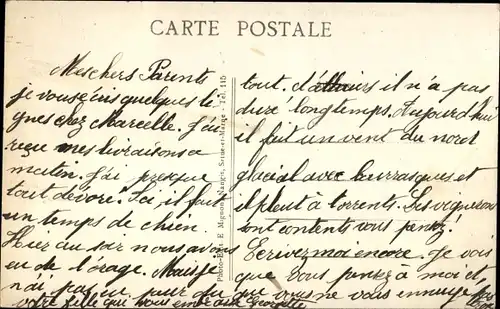 CARTE POSTALE
Mes chers Parents
je vous écris quelques li
gnes chez Marcelle. J'ai
reçue mes livraisons a
matin. J'ai presque
tout dévoré. Ici il fait
un temps de chien.
Hier au soir nous avons
eu de l'orage. Mais je
n'ai pas eu peur du
votre fille qui vous embrasse
Photo-Edit. E. Mignon, Nangis, Seine-et-Marne - Tél. 115
tout. d'ailleurs il n'a pas
duré longtemps. Aujourd'hui
il fait un vent du nord
glacial avec bourrasques et
il pleut à torrents. Les vignerons
sont contents vous pensez!
Ecrivez moi encore. Je vois
que vous pensez à moi et
que vous ne vous ennuyez pas